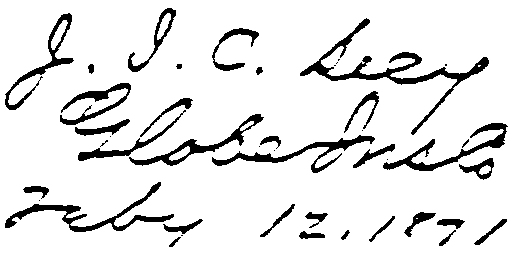 J. I. C. Seey
Globe Ins Co
Feby 12, 1871